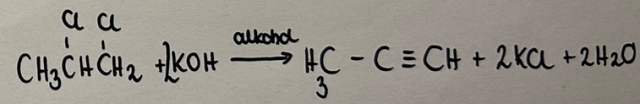 Cl Cl
CH₃CHCH₂ + 2KOH alkohol → H₃C – C ≡ CH + 2KCl + 2H₂O